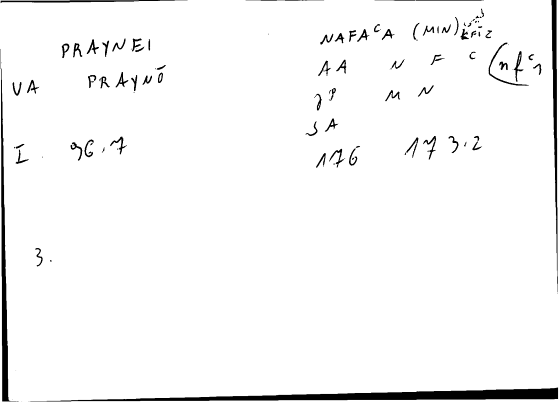 PRAYNEI
VA PRAYNŌ
I. 96.7
3.
NAFAᶜA (MIN)
AA N F C (nfᶜ1
M N
176 173.2